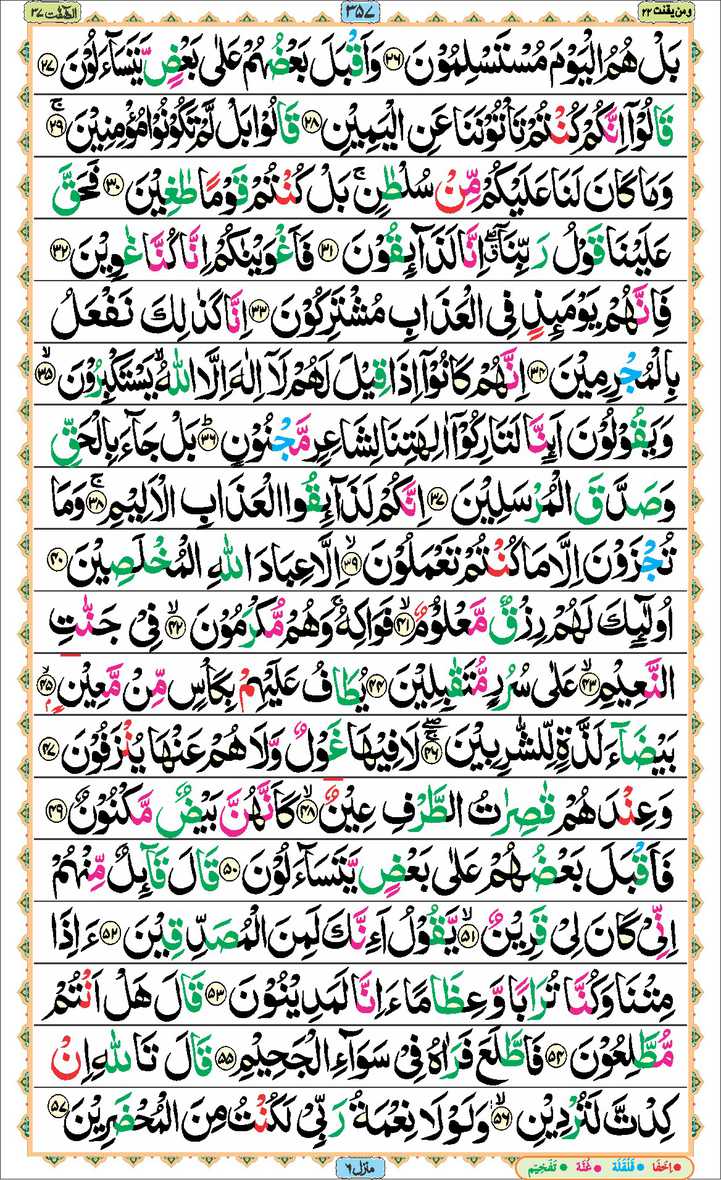 ومن یقنت ۲۳
۳۵۷
الصّٰفّٰت ۳۷
بَلْ هُمُ الْیَوْمَ مُسْتَسْلِمُوْنَ ۝۲۶ وَاَقْبَلَ بَعْضُهُمْ عَلٰى بَعْضٍ یَّتَسَآءَلُوْنَ ۝۲۷
قَالُوْۤا اِنَّكُمْ كُنْتُمْ تَاْتُوْنَنَا عَنِ الْیَمِیْنِ ۝۲۸ قَالُوْا بَلْ لَّمْ تَكُوْنُوْا مُؤْمِنِیْنَ ۝ۚ۲۹
وَمَا كَانَ لَنَا عَلَیْكُمْ مِّنْ سُلْطٰنٍ ۚ بَلْ كُنْتُمْ قَوْمًا طٰغِیْنَ ۝۳۰ فَحَقَّ
عَلَیْنَا قَوْلُ رَبِّنَاۤ ۖۗ اِنَّا لَذَآىِٕقُوْنَ ۝۳۱ فَاَغْوَیْنٰكُمْ اِنَّا كُنَّا غٰوِیْنَ ۝۳۲
فَاِنَّهُمْ یَوْمَىِٕذٍ فِی الْعَذَابِ مُشْتَرِكُوْنَ ۝۳۳ اِنَّا كَذٰلِكَ نَفْعَلُ
بِالْمُجْرِمِیْنَ ۝۳۴ اِنَّهُمْ كَانُوْۤا اِذَا قِیْلَ لَهُمْ لَاۤ اِلٰهَ اِلَّا اللّٰهُ ۙ یَسْتَكْبِرُوْنَ ۝ۙ۳۵
وَیَقُوْلُوْنَ اَىِٕنَّا لَتَارِكُوْۤا اٰلِهَتِنَا لِشَاعِرٍ مَّجْنُوْنٍ ۝ؕ۳۶ بَلْ جَآءَ بِالْحَقِّ
وَصَدَّقَ الْمُرْسَلِیْنَ ۝۳۷ اِنَّكُمْ لَذَآىِٕقُوا الْعَذَابِ الْاَلِیْمِ ۝ۚ۳۸ وَمَا
تُجْزَوْنَ اِلَّا مَا كُنْتُمْ تَعْمَلُوْنَ ۝ۙ۳۹ اِلَّا عِبَادَ اللّٰهِ الْمُخْلَصِیْنَ ۝۴۰
اُولٰٓىِٕكَ لَهُمْ رِزْقٌ مَّعْلُوْمٌ ۝ۙ۴۱ فَوَاكِهُ ۚ وَهُمْ مُّكْرَمُوْنَ ۝ۙ۴۲ فِیْ جَنّٰتِ
النَّعِیْمِ ۝ۙ۴۳ عَلٰى سُرُرٍ مُّتَقٰبِلِیْنَ ۝۴۴ یُطَافُ عَلَیْهِمْ بِكَاْسٍ مِّنْ مَّعِیْنٍۭ ۝ۙ۴۵
بَیْضَآءَ لَذَّةٍ لِّلشّٰرِبِیْنَ ۝ۚۖ۴۶ لَا فِیْهَا غَوْلٌ وَّلَا هُمْ عَنْهَا یُنْزَفُوْنَ ۝۴۷
وَعِنْدَهُمْ قٰصِرٰتُ الطَّرْفِ عِیْنٌ ۝ۙ۴۸ كَاَنَّهُنَّ بَیْضٌ مَّكْنُوْنٌ ۝۴۹
فَاَقْبَلَ بَعْضُهُمْ عَلٰى بَعْضٍ یَّتَسَآءَلُوْنَ ۝۵۰ قَالَ قَآىِٕلٌ مِّنْهُمْ
اِنِّیْ كَانَ لِیْ قَرِیْنٌ ۝ۙ۵۱ یَّقُوْلُ اَءِنَّكَ لَمِنَ الْمُصَدِّقِیْنَ ۝۵۲ ءَاِذَا
مِتْنَا وَكُنَّا تُرَابًا وَّعِظَامًا ءَاِنَّا لَمَدِیْنُوْنَ ۝۵۳ قَالَ هَلْ اَنْتُمْ
مُّطَّلِعُوْنَ ۝۵۴ فَاطَّلَعَ فَرَاٰهُ فِیْ سَوَآءِ الْجَحِیْمِ ۝۵۵ قَالَ تَاللّٰهِ اِنْ
كِدْتَّ لَتُرْدِیْنِ ۝ۙ۵۶ وَلَوْلَا نِعْمَةُ رَبِّیْ لَكُنْتُ مِنَ الْمُحْضَرِیْنَ ۝۵۷
منزل ۶
اِخفَا • قَلْقَلَة • غُنَّة • تَفْخِیْم •